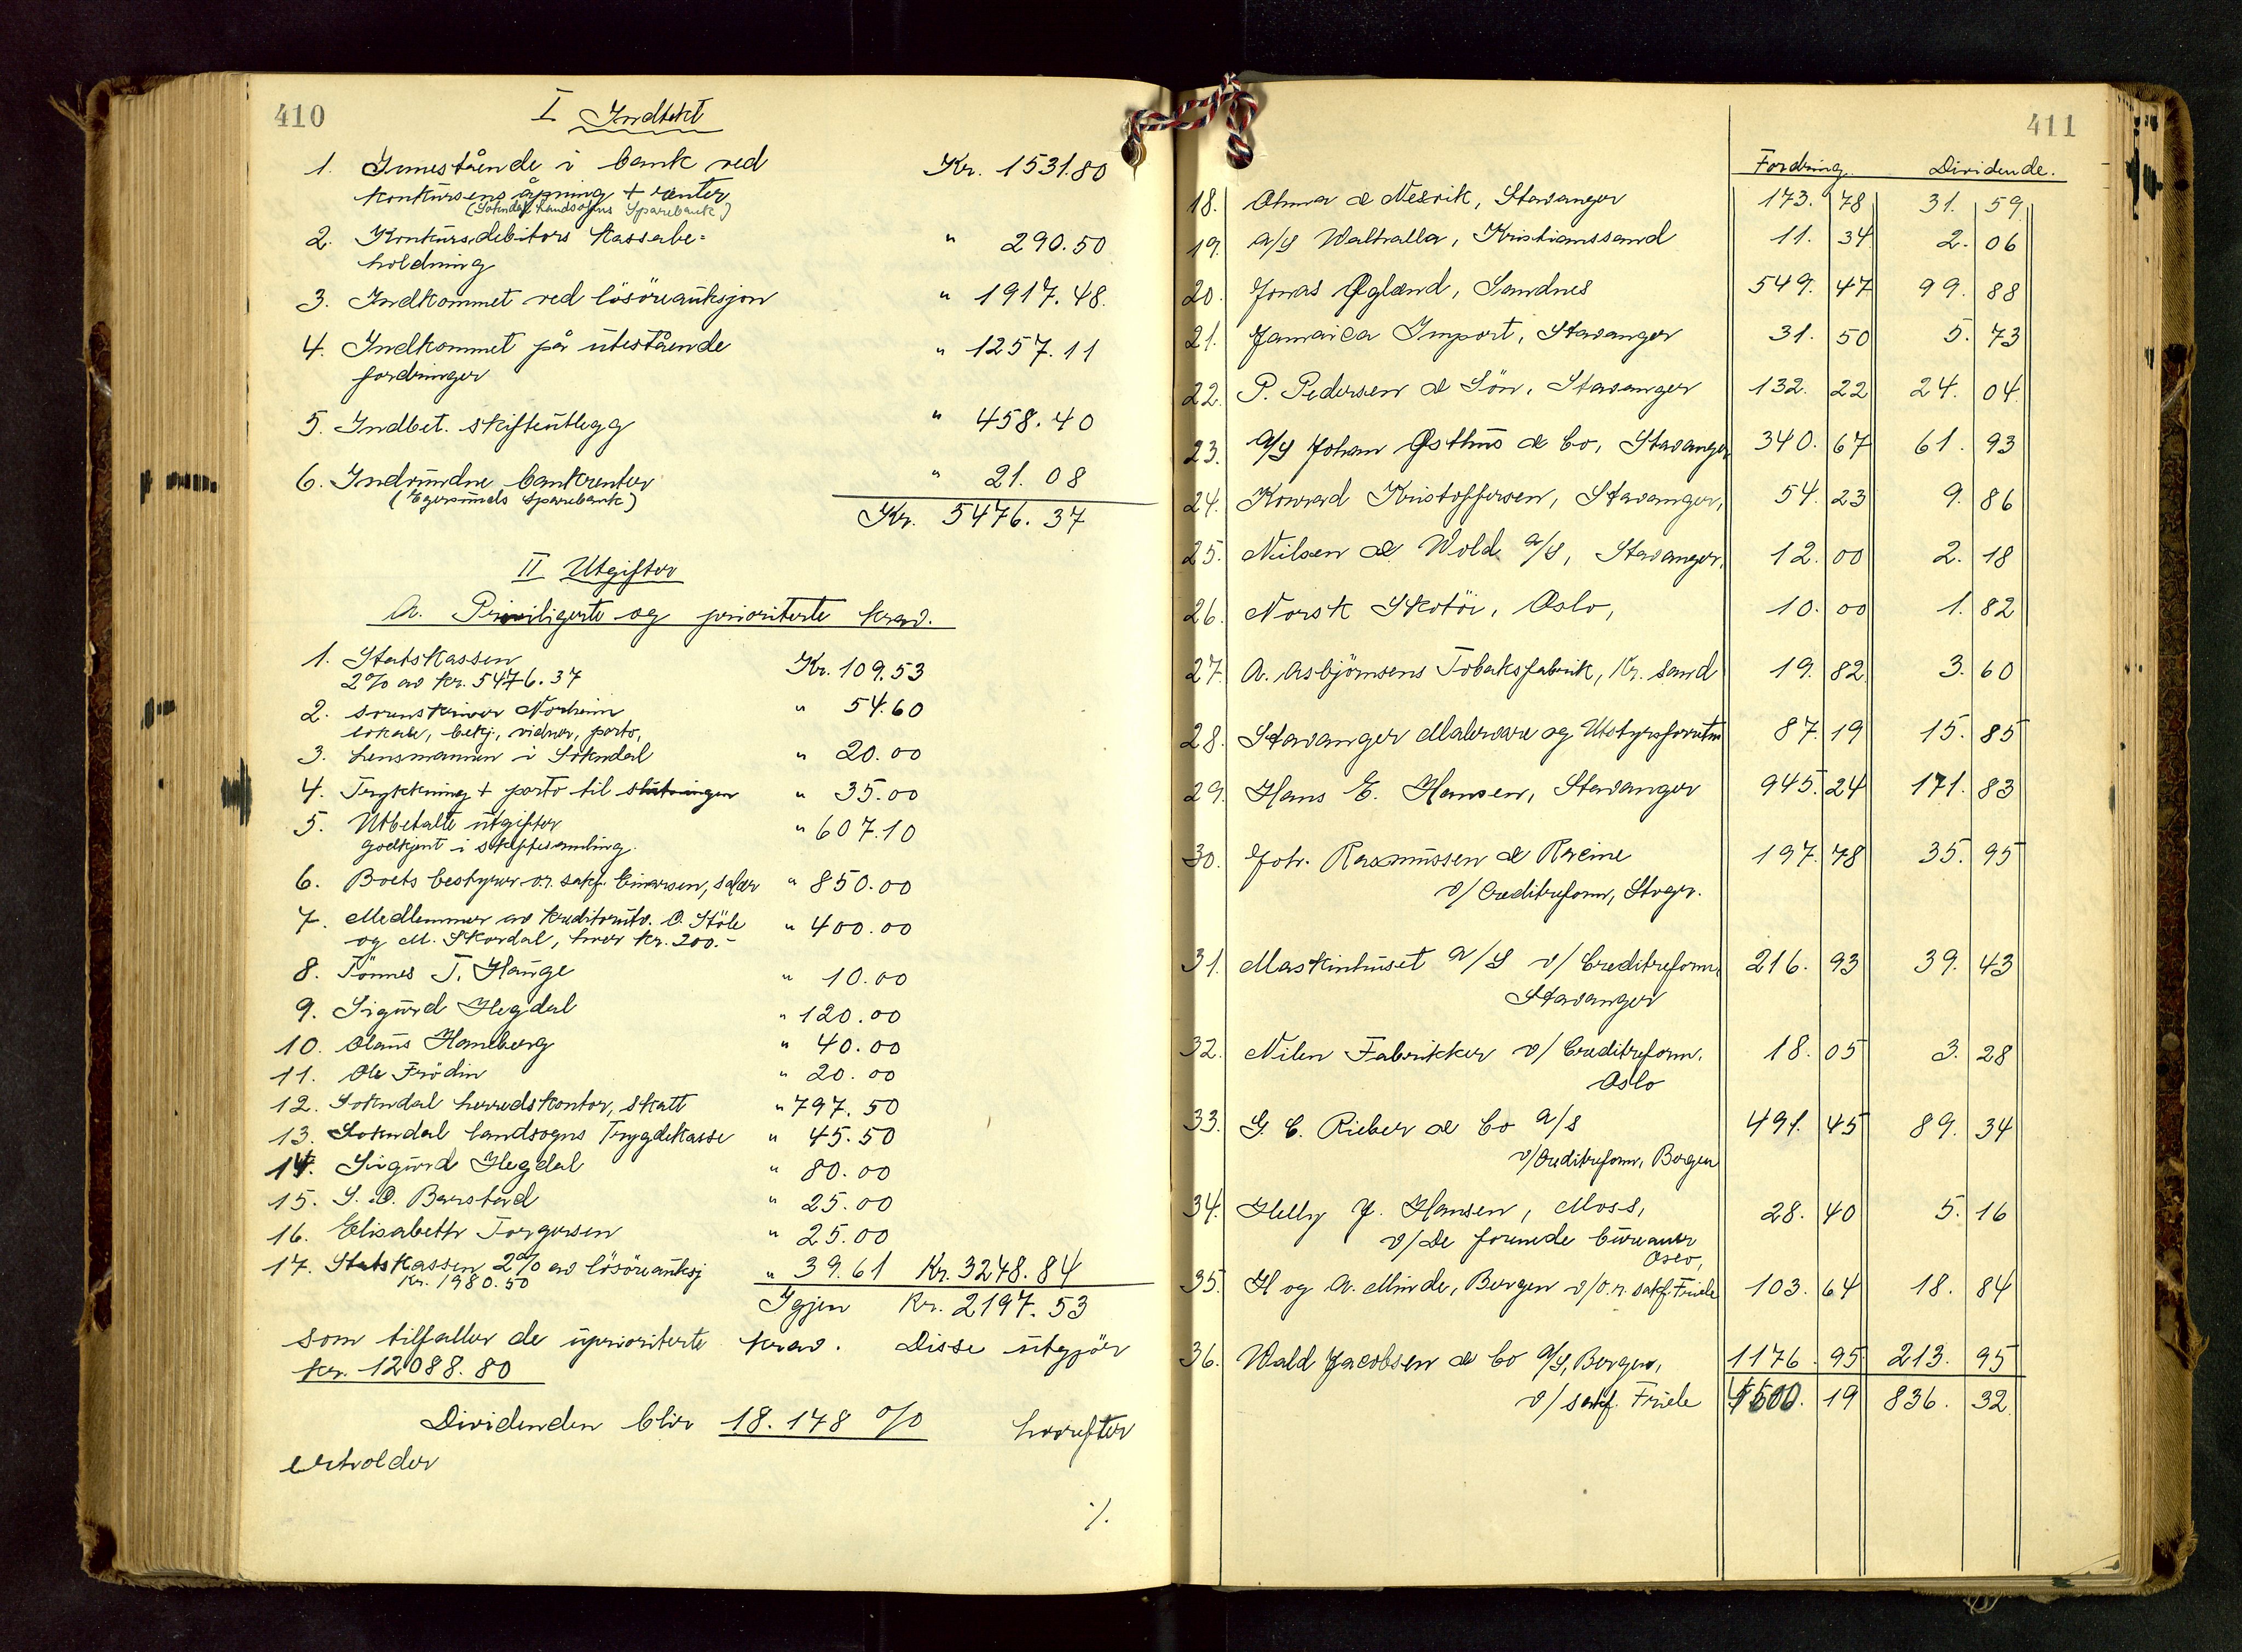 410
I Indtekt
1. Innestående i bank ved Kr. 1531.80
konkursens åpning + renter
(Sokndal Landsogns Sparebank)
2. Konkursdebitors kassabe= " 290.50
holdning
3. Indkommet ved lösöreauksjon " 1917.48.
4. Indkommet på utestående " 1257.11
fordringer
5. Indbet. skifteutlegg " 458.40
6. Indvundne bankrenter " 21.08
(Egersunds Sparebank)
Kr. 5476.37
II Utgifter
A. Priviligerte og prioriterte krav.
1. Statskassen Kr. 109.53
2% av kr. 5476.37
2. Sorenskriver Norheim " 54.60
lokale, bekj., vidner, porto,
3. Lensmannen i Sokndal " 20.00
4. Trykkning + porto til slutningen " 35.00
5. Utbetalte utgifter " 607.10
godkjent i skiftesamling.
6. Boets bestyrer o.r. sakf. Einarsen, salær " 850.00
7. Medlemmer av kreditorutv. O. Stöle " 400.00
og M. Skardal, hver kr. 200.-
8. Tönnes T. Hauge " 10.00
9. Sigurd Hegdal " 120.00
10. Olaus Hamberg " 40.00
11. Ole Frödin " 20.00
12. Sokndal herredskontor, skatt " 797.50
13. Sokndal landsogns Trygdekasse " 45.50
14. Sigurd Hegdal " 80.00
15. S. O. Barstad " 25.00
16. Elisabeth Torgersen " 25.00
17. Statskassen 2% av lösöreauksj " 39.61 Kr. 3248.84
Kr. 1980.50
Igjen Kr. 2197.53
som tilfaller de uprioriterte krav. Disse utgjör
kr. 12088.80
Dividenden blir 18.178 % hvorefter
erholder
./.
411
Fordring. Dividende.
18. Ohma & Nesvik, Stavanger 173.78 31.59
19. A/S Walhalla, Kristianssand 11.34 2.06
20. Jonas Øglænd, Sandnes 549.47 99.88
21. Jamaica Import, Stavanger 31.50 5.73
22. P. Pedersen & Sön, Stavanger 132.22 24.04
23. A/S Johan Østhus & Co, Stavanger 340.67 61.93
24. Konrad Kristoffersen, Stavanger, 54.23 9.86
25. Nilsen & Wold A/S, Stavanger, 12.00 2.18
26. Norsk Skotöi, Oslo, 10.00 1.82
27. A. Asbjörnsens Tobaksfabrik, Kr. sand 19.82 3.60
28. Stavanger Malervare og Utstyrsforretn 87.19 15.85
29. Hans E. Hansen, Stavanger 945.24 171.83
30. Joh. Rasmussen & Racine 197.78 35.95
v/ Creditreform, Stvgr.
31. Maskinhuset A/S v/ Creditreform, 216.93 39.43
Stavanger
32. Nilen Fabrikker v/ Creditreform, 18.05 3.28
Oslo
33. G. C. Rieber & Co A/S 491.45 89.34
v/ Creditreform, Bergen
34. Helly J. Hansen, Moss, 28.40 5.16
v/ De forenede bureauer
Oslo,
35. H og A. Minde, Bergen v/ o.r. sakf. Friele 103.64 18.84
36. Wald Jacobsen & Co A/S, Bergen, 1176.95 213.95
v/ sakf. Friele 4600.19 836.32